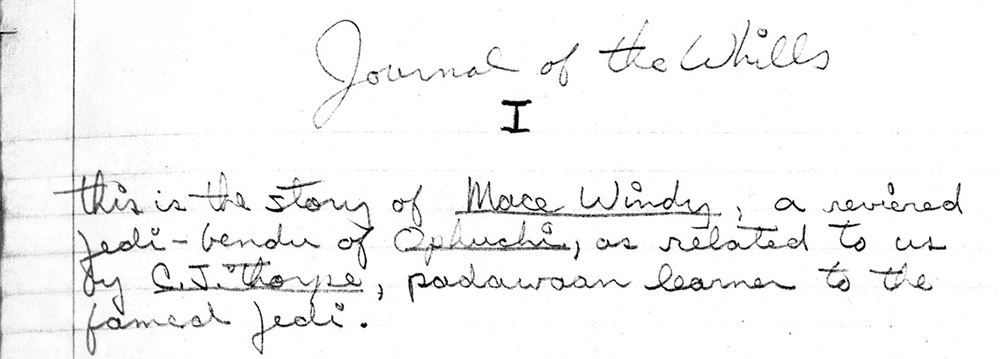 Journal of the Whills
I
this is the story of Mace Windy, a reviered
Jedi-bendu of Opluchi, as related to us
by C.J. Thorpe, padawaan learner to the
famed Jedi.